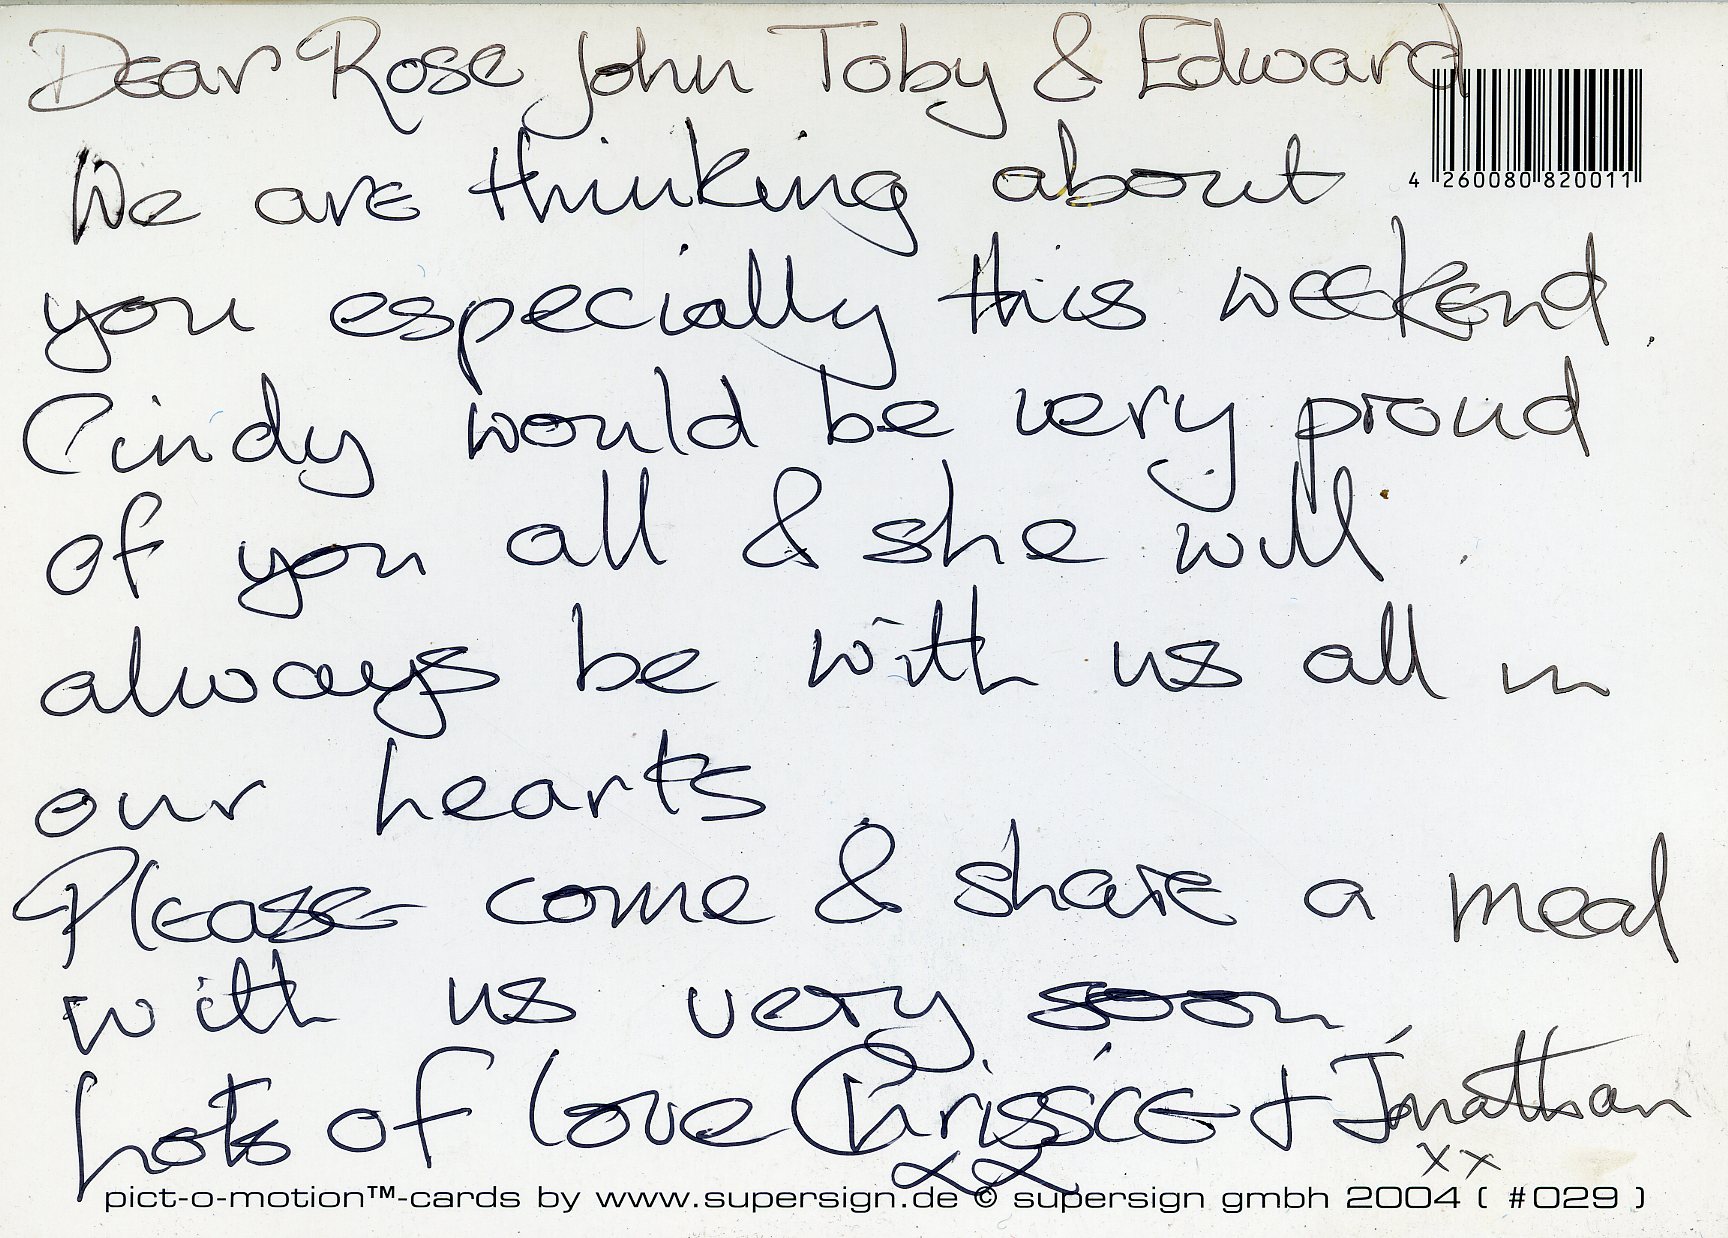 Dear Rose John Toby & Edward
4 260080 820011
We are thinking about
you especially this weekend.
Cindy would be very proud
of you all & she will
always be with us all in
our hearts
Please come & share a meal
with us very soon
Lots of love Chrissie + Jonathan
xx xx
pict-o-motion™-cards by www.supersign.de © supersign gmbh 2004 ( #029 )